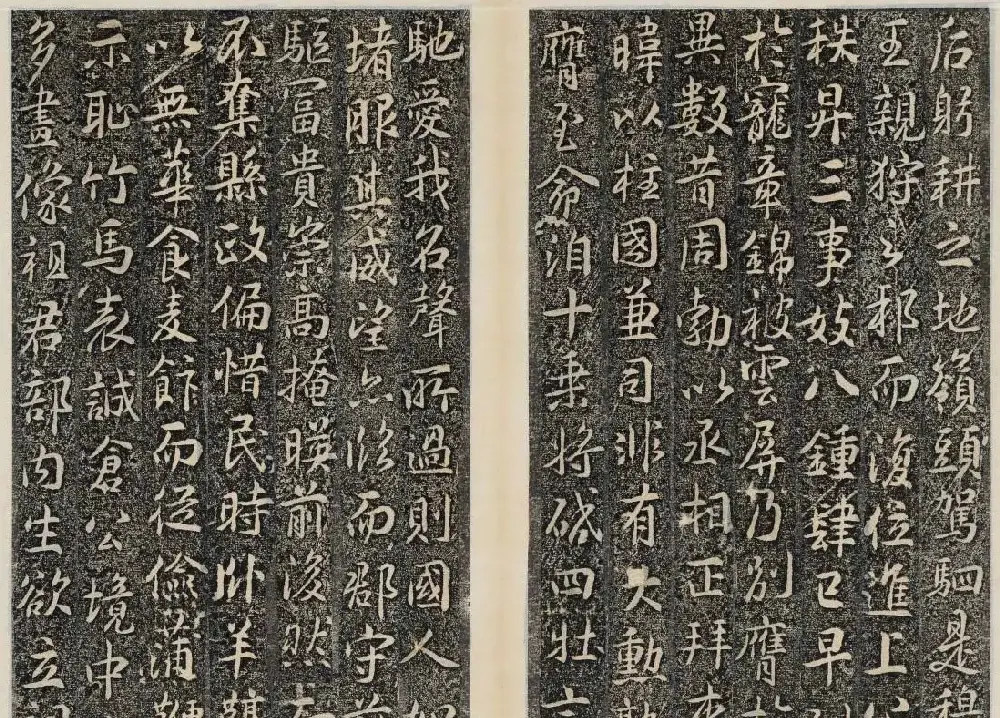 后躬耕之地嶺頭駕駟是穆
王親狩之邦而復位進上
秩昇三事妓八鍾肆已早
於寵章錦被雲屏乃別膺
異數昔周勃以丞相正拜
暐以柱國兼司非有大勳
膺至命洎十乘將啟四牡
馳愛我名聲所過則國人
堵眼其威望亦臨而郡守
驅冨貴崇高掩暎前後然
不奪縣政偏惜民時卧羊
以無華食麦飰而從儉蒲鞭
示恥竹馬表誠倉公境中
多畫像祖君部内生欲立祠